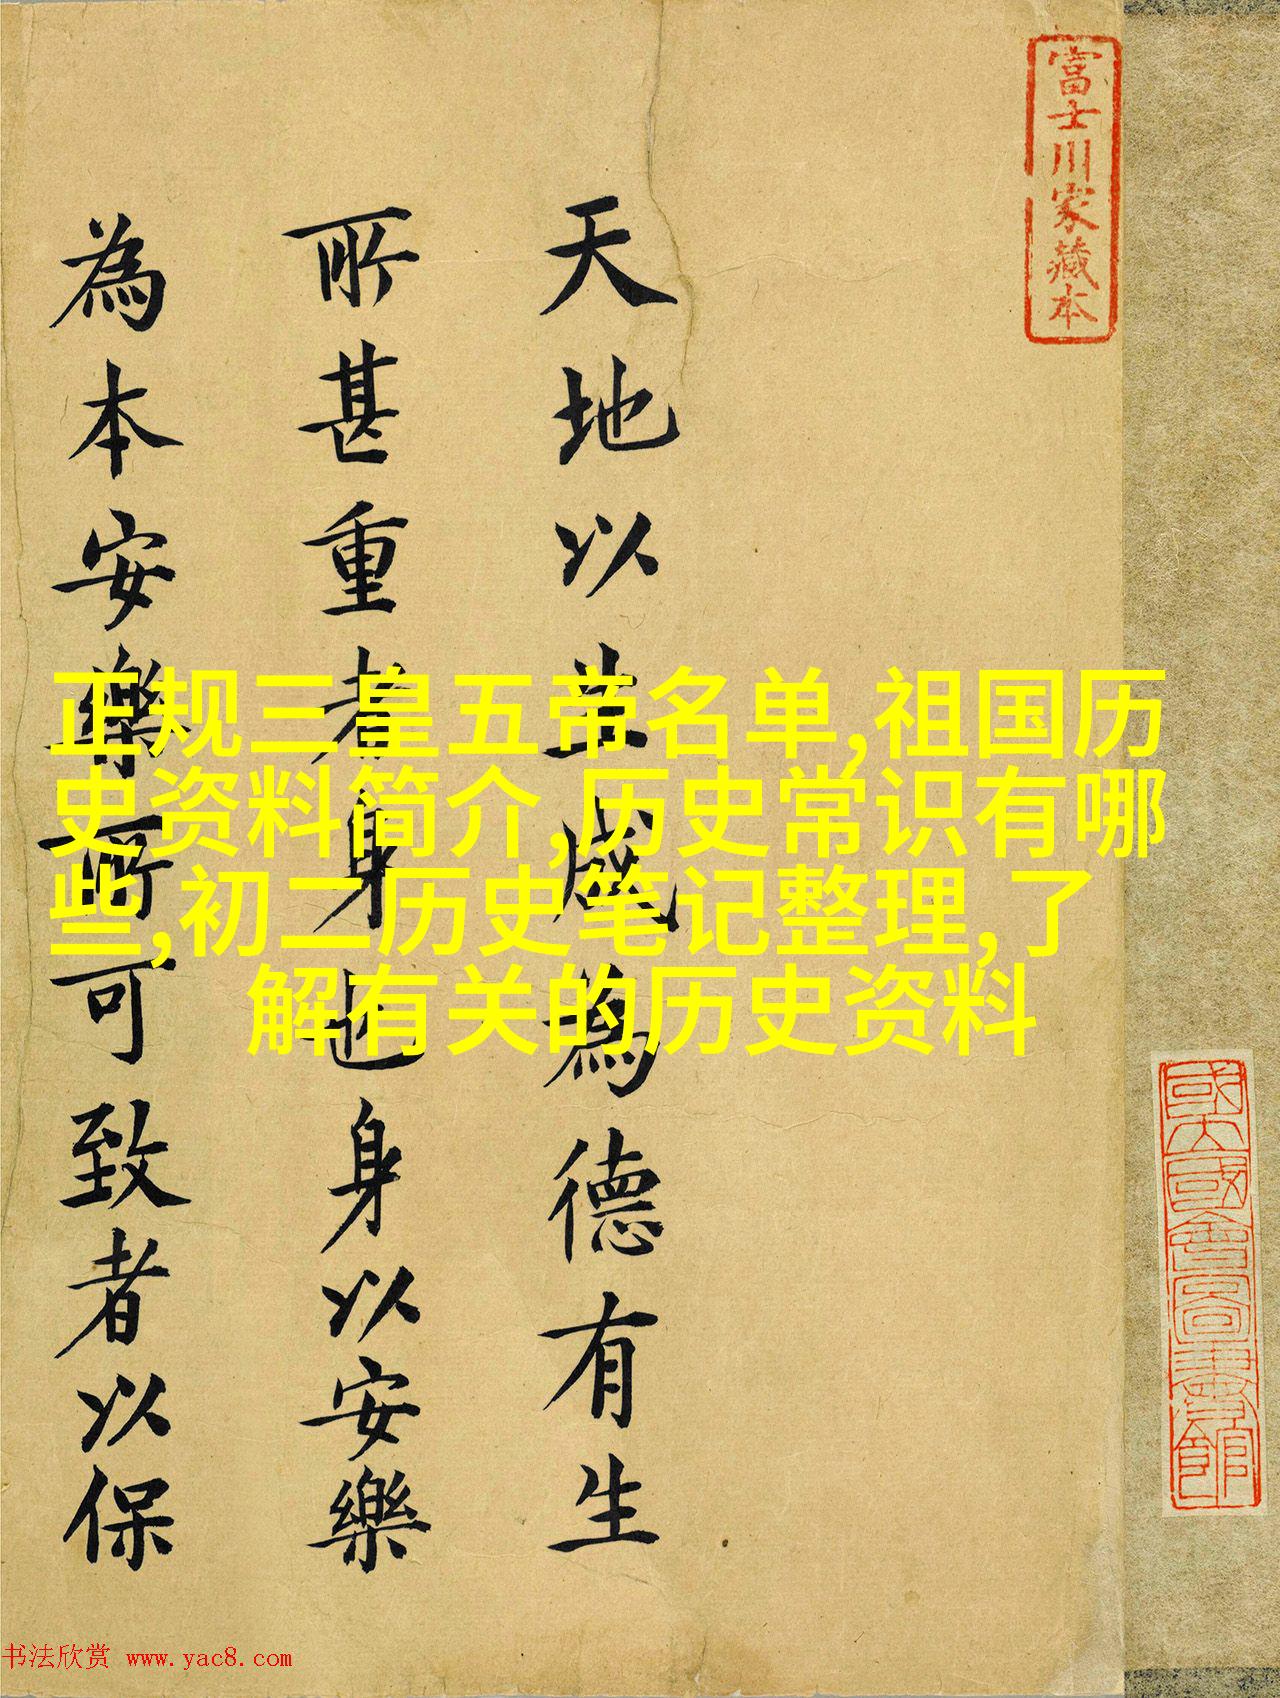 富士川家藏本
國立國會圖書館
天地以生成為德有生
所甚重者身也身以安樂
為本安樂所可致者以保
正规三皇五帝名单,祖国历
史资料简介,历史常识有哪
些,初二历史笔记整理,了
解有关的历史资料
书法欣赏 www.yac8.com